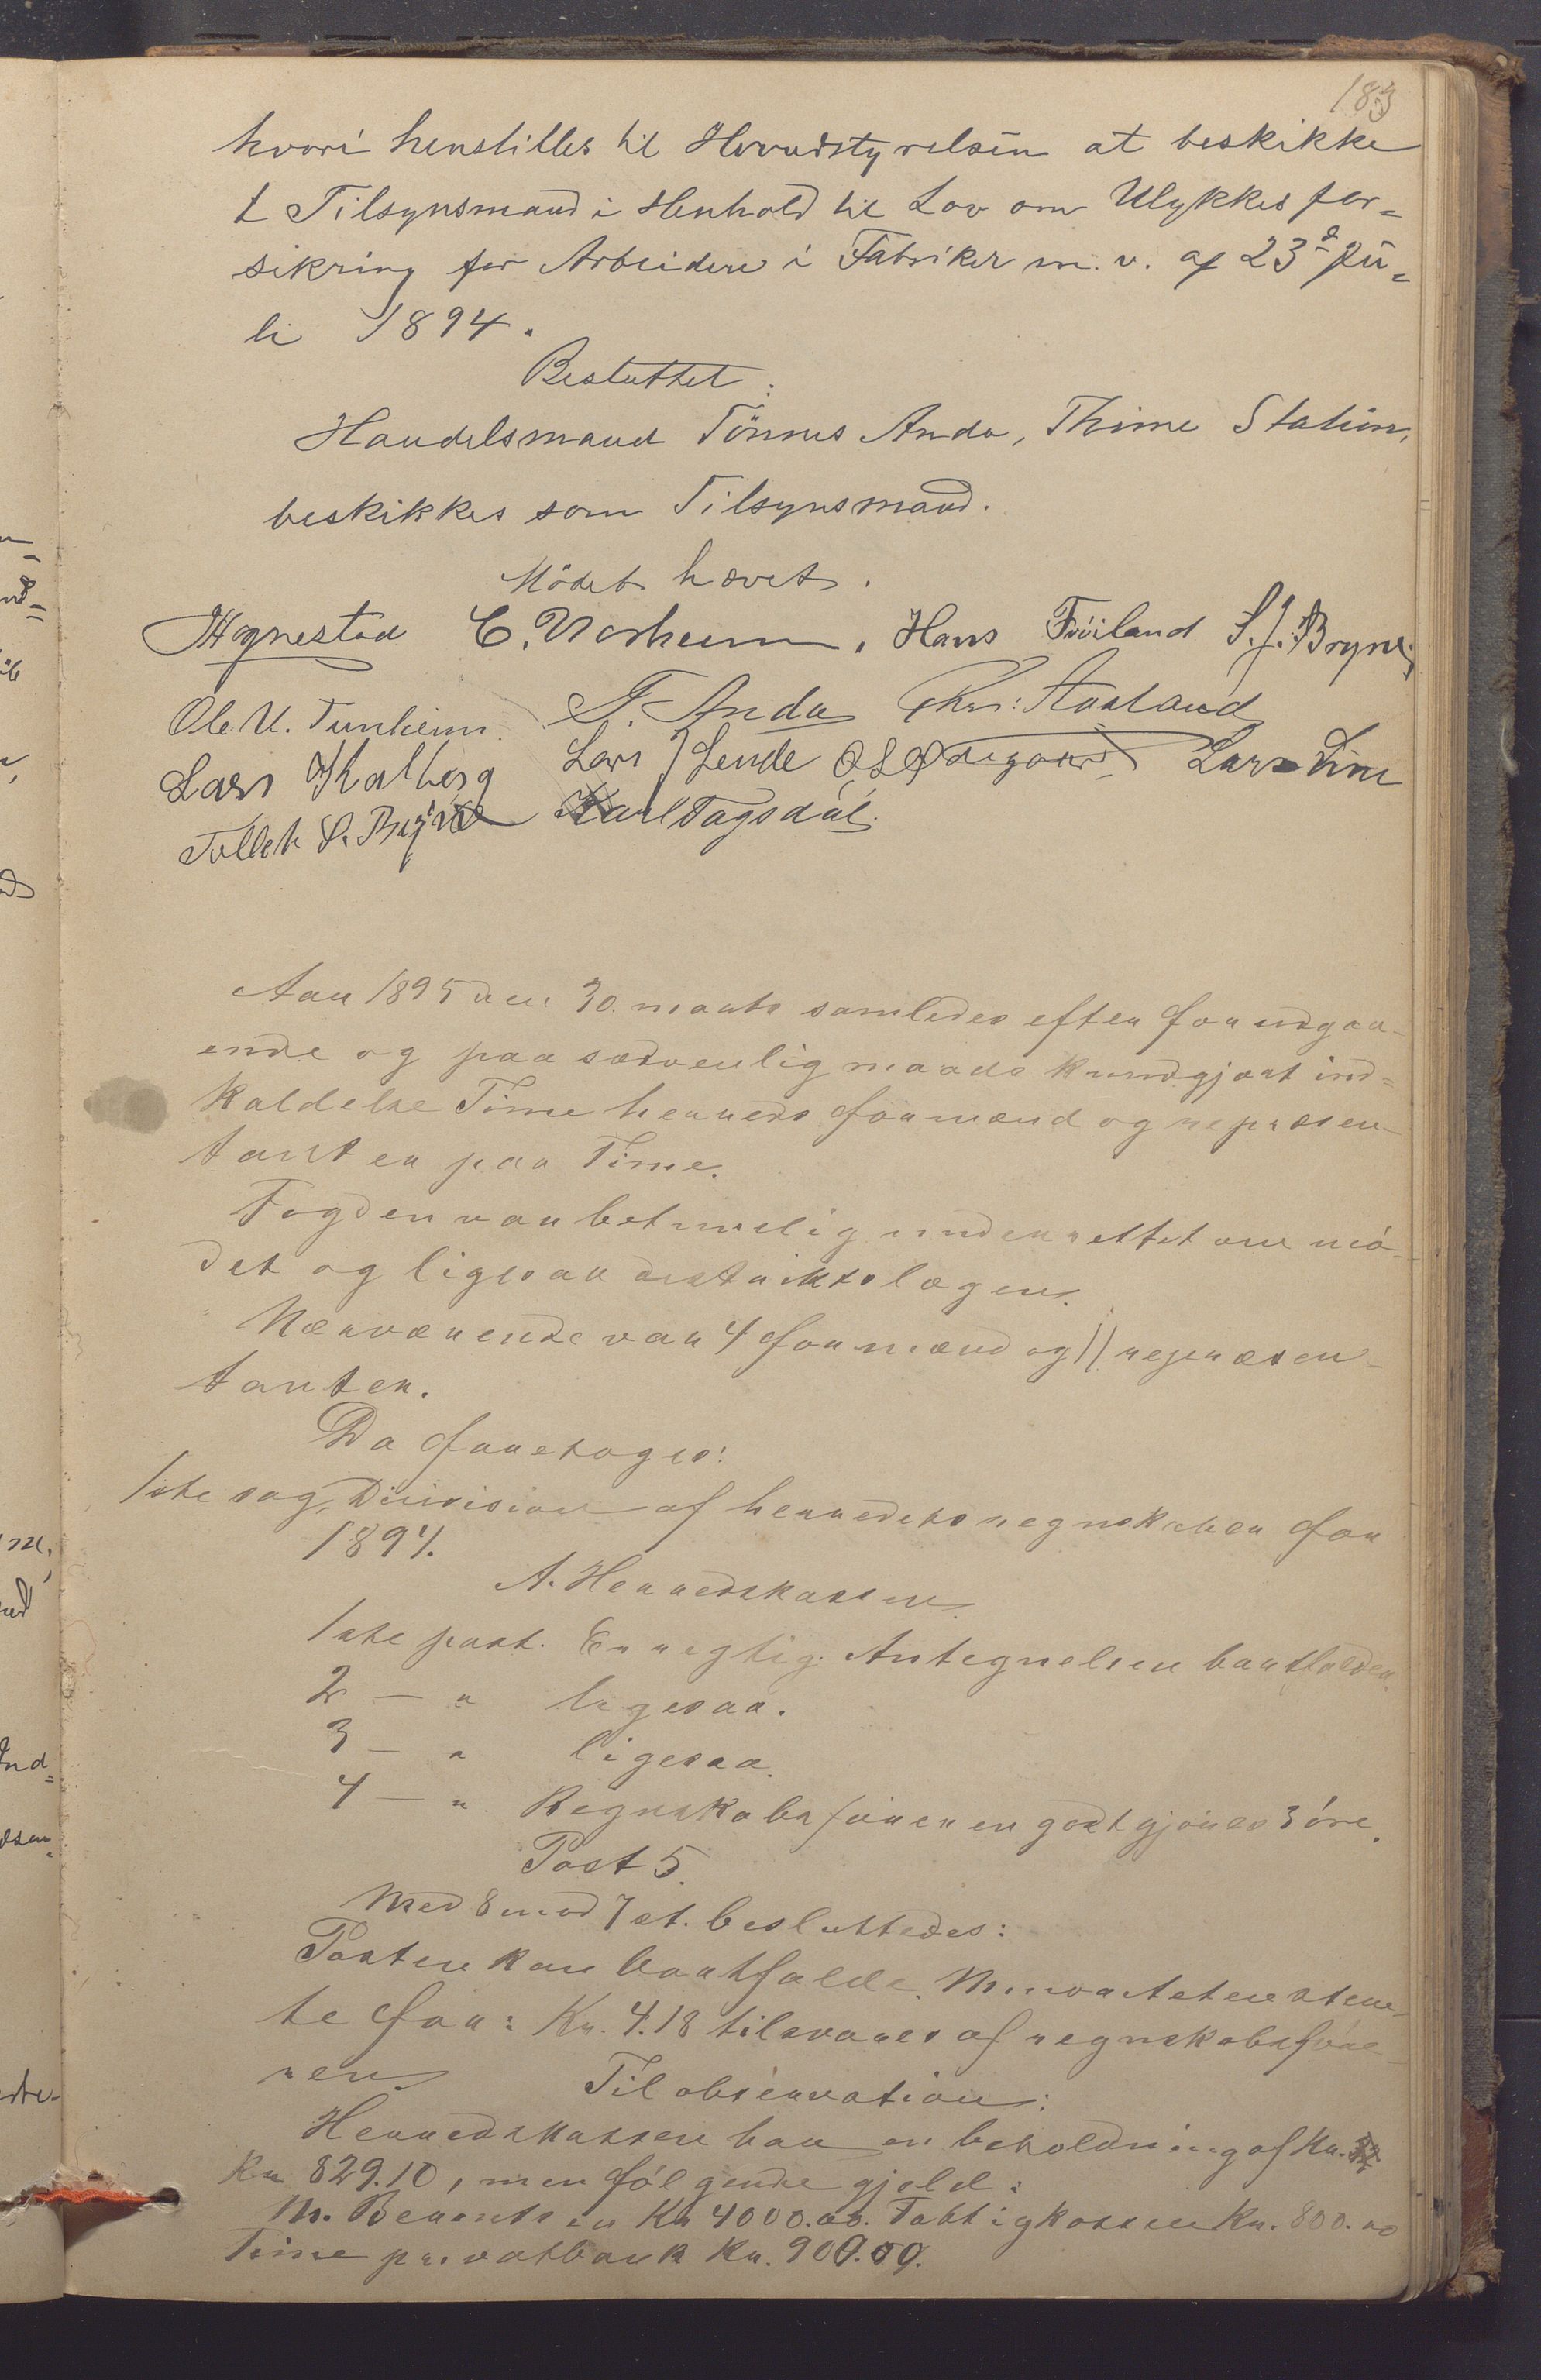 183
hvori henstilles til Herredstyrelsen at beskikke
1 Tilsynsmand i Henhold til Lov om Ulykkesfor=
sikring for Arbeidere i Fabriker m. v. af 23d Ju=
li 1894.
Besluttet:
Handelsmand Tönnes Anda, Thime Station,
beskikkes som Tilsynsmand.
Mödet hævet.
Hognestad C. Norheim, Hans Fröiland S. J. Bryne,
Ole U. Tunheim. T. Anda Chr: Aasland
Lars Kalberg Lars J Lende Lars Lime
Tollek S. Bryne Karl Tagsdal.
Aar 1895 den 30. marts samledes efter forudgaa-
ende og paa sædvenlig maade kundgjort ind=
kaldelse Time herreds formænd og repræsen-
tanter paa Time.
Fogden var betimelig underrettet om mö-
det og ligesaa distriktslægen.
Nærværende var 4 formænd og 11 repræsen-
tanter.
Da foretoges:
1ste sag, Dicision af herredets regnskaber for
1894.
A. Herredskassen.
1ste post. Er rigtig. Antegnelsen bortfalder.
2 — " ligesaa.
3 — " ligesaa.
4 — " Regnskabsföreren godtgjöres 3 öre.
Post 5.
Med 8 mod 7 st. besluttedes:
Posten kan bortfalde. Minoriteten stem-
te for: Kr. 4.18 tilsvares af regnskabsföre-
ren. Til observation:
Herredskassen har en beholdning af Kr.
Kr 829.10, men fölgende gjeld:
M. Berentsen Kr 4000.00. Fattigkassen Kr. 800.00
Time privatbank Kr. 900.00.